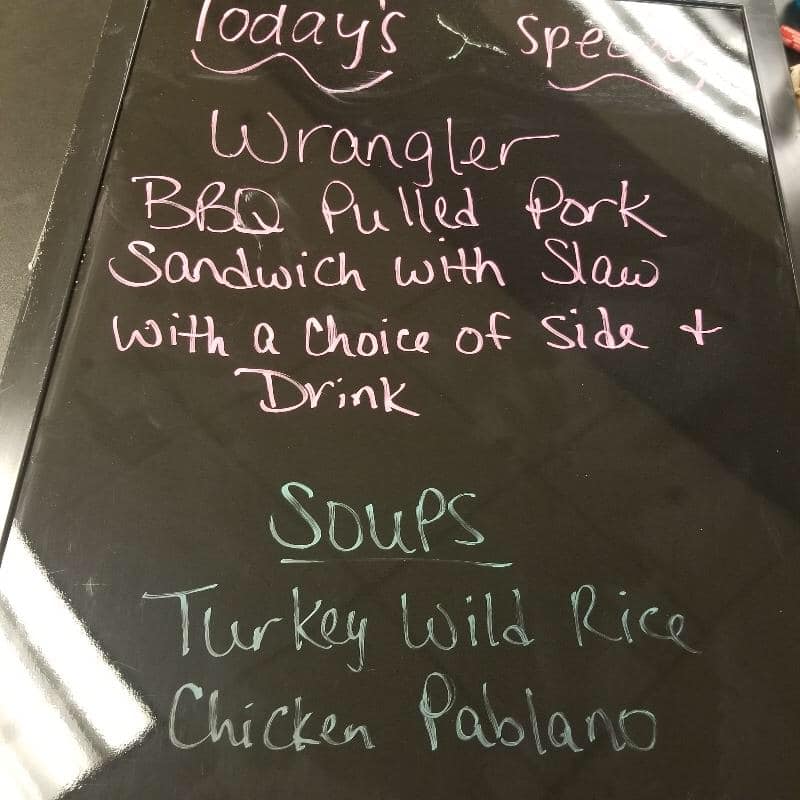 Today's Special
Wrangler
BBQ Pulled Pork
Sandwich with Slaw
with a choice of side +
Drink
Soups
Turkey Wild Rice
Chicken Pablano